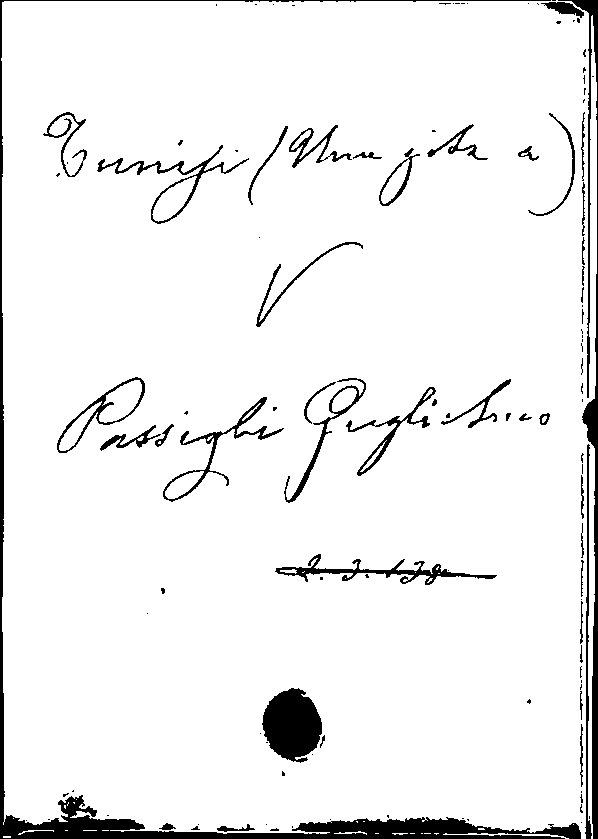 Tunisi (Una gita a)
V
Passigli Guglielmo
2. 3. 138